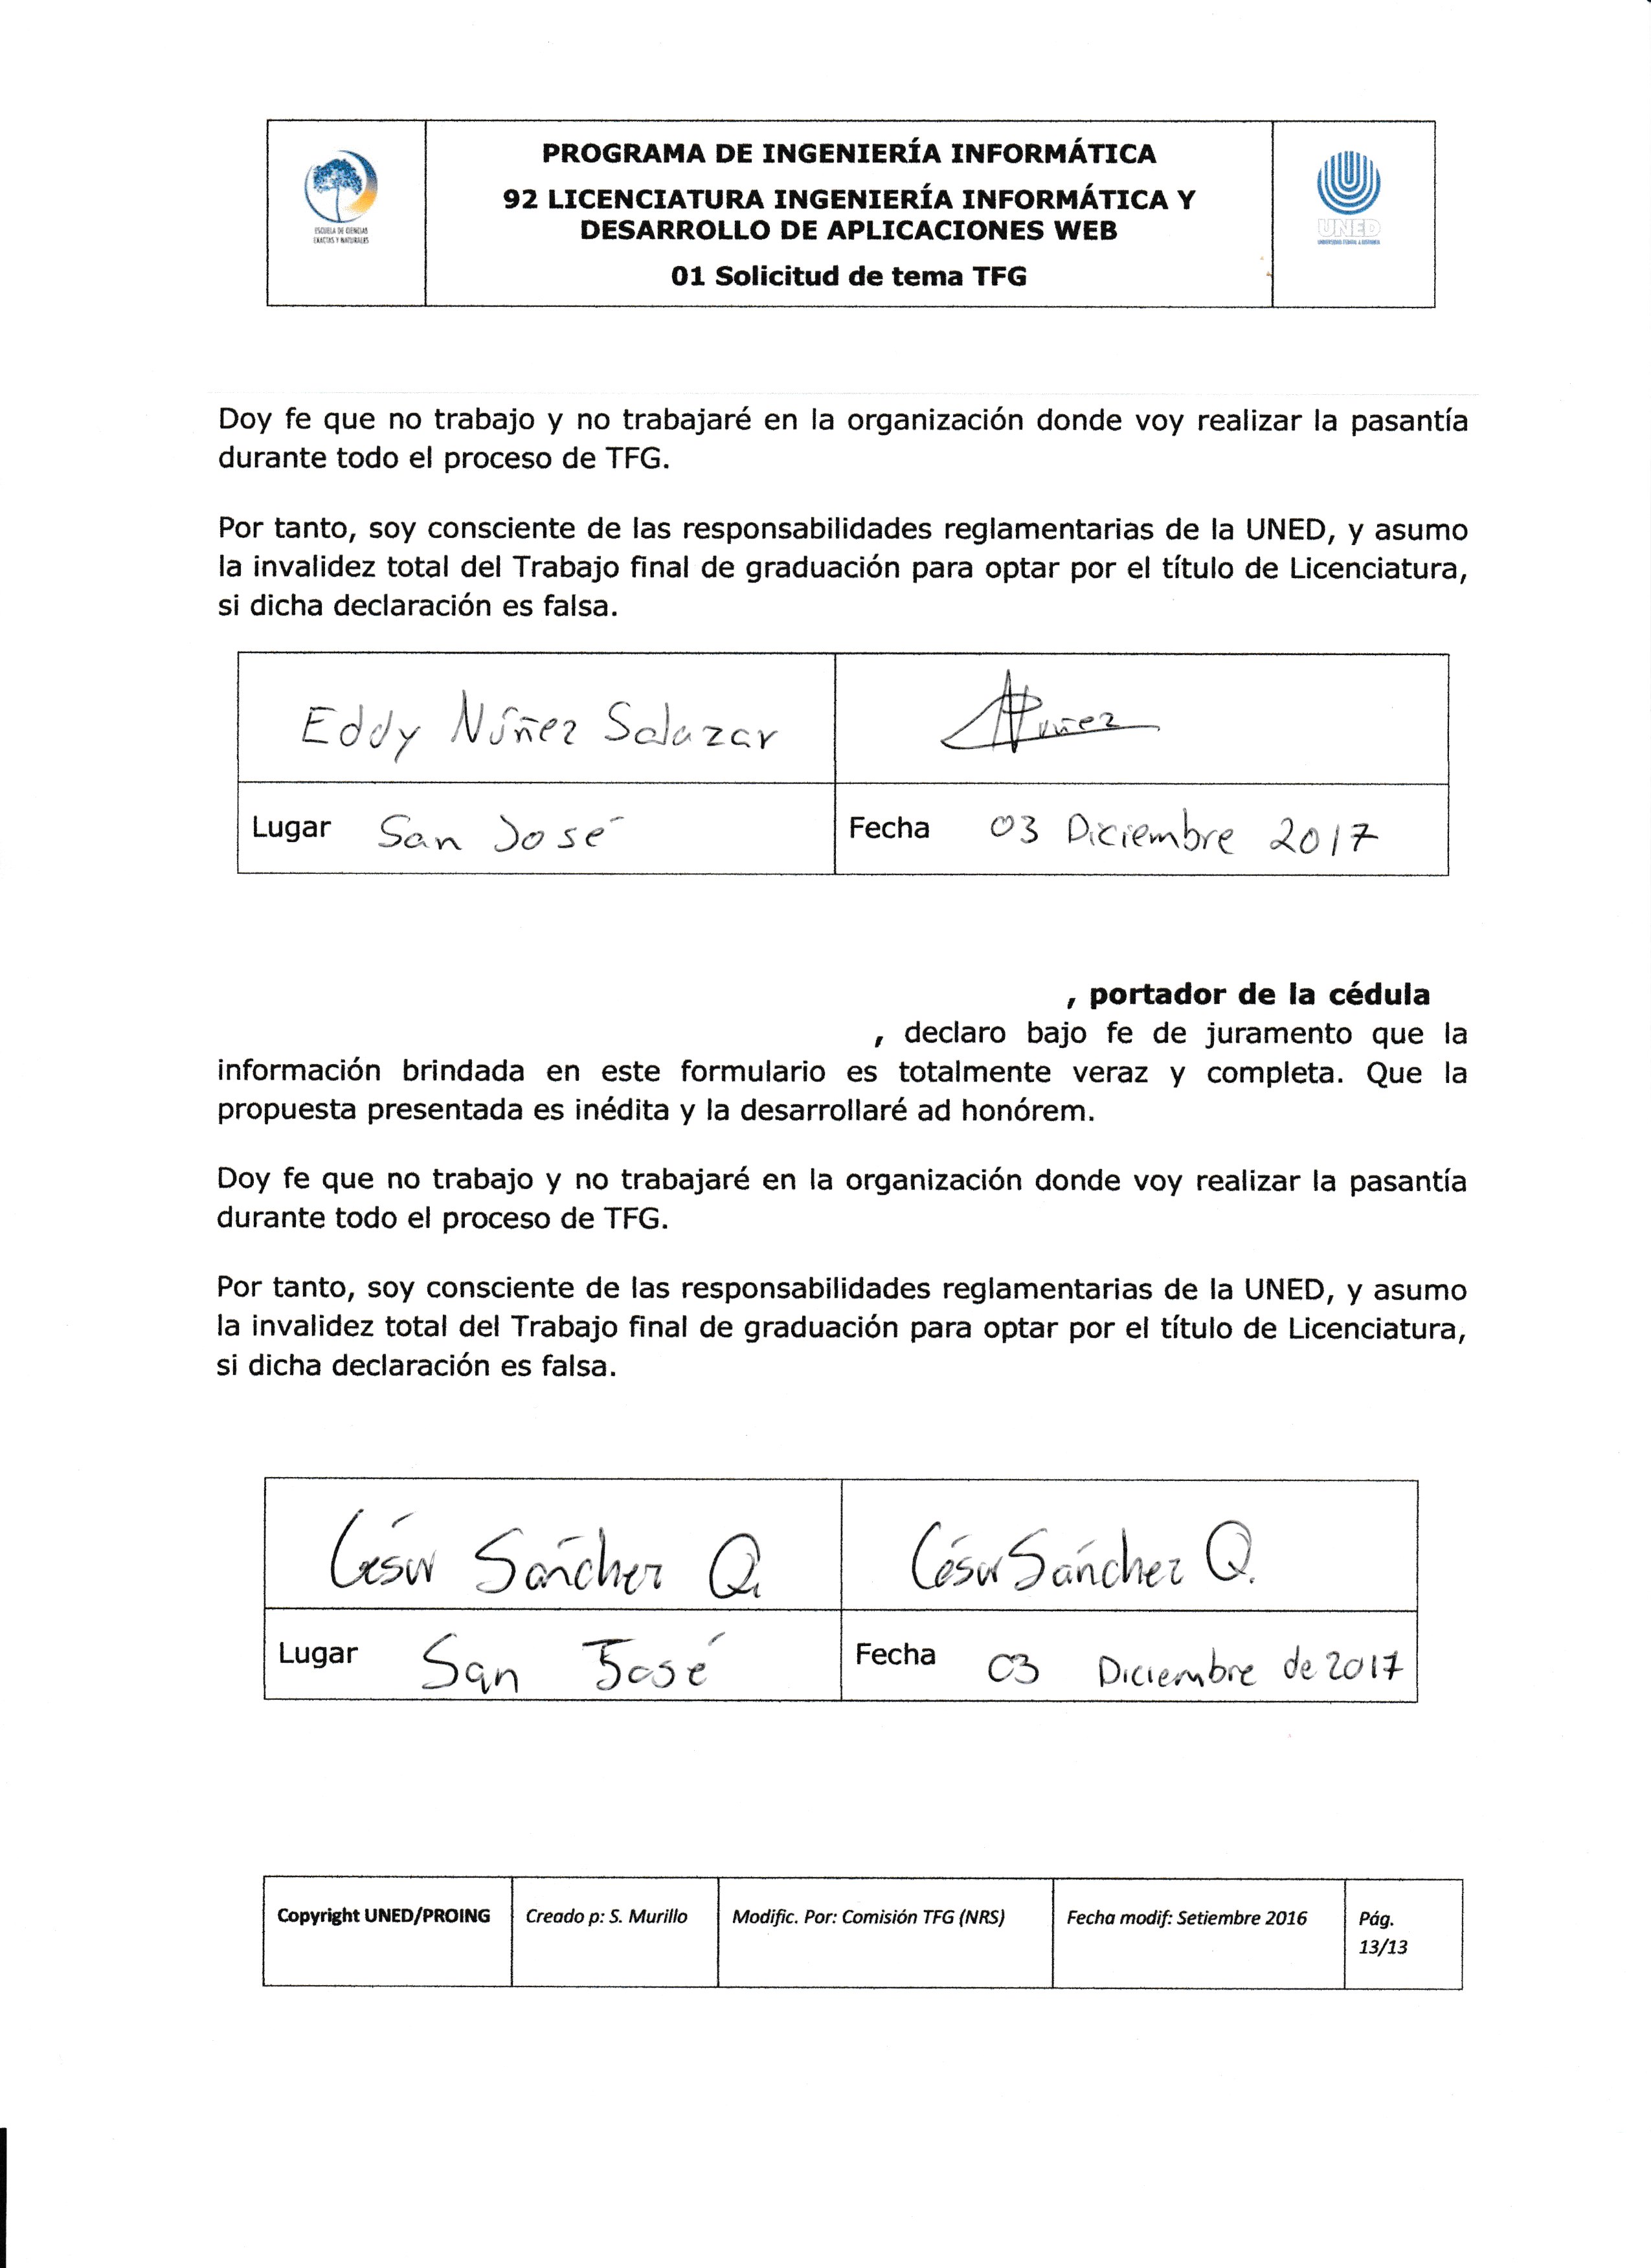 ESCUELA DE CIENCIAS
EXACTAS Y NATURALES
PROGRAMA DE INGENIERÍA INFORMÁTICA
92 LICENCIATURA INGENIERÍA INFORMÁTICA Y
DESARROLLO DE APLICACIONES WEB
01 Solicitud de tema TFG
UNED
UNIVERSIDAD ESTATAL A DISTANCIA
Doy fe que no trabajo y no trabajaré en la organización donde voy realizar la pasantía
durante todo el proceso de TFG.
Por tanto, soy consciente de las responsabilidades reglamentarias de la UNED, y asumo
la invalidez total del Trabajo final de graduación para optar por el título de Licenciatura,
si dicha declaración es falsa.
Eddy Núñez Salazar
Núñez
Lugar San José
Fecha 03 Diciembre 2017
, portador de la cédula
, declaro bajo fe de juramento que la
información brindada en este formulario es totalmente veraz y completa. Que la
propuesta presentada es inédita y la desarrollaré ad honórem.
Doy fe que no trabajo y no trabajaré en la organización donde voy realizar la pasantía
durante todo el proceso de TFG.
Por tanto, soy consciente de las responsabilidades reglamentarias de la UNED, y asumo
la invalidez total del Trabajo final de graduación para optar por el título de Licenciatura,
si dicha declaración es falsa.
César Sánchez Q.
César Sánchez Q.
Lugar San José
Fecha 03 Diciembre de 2017
Copyright UNED/PROING
Creado p: S. Murillo
Modific. Por: Comisión TFG (NRS)
Fecha modif: Setiembre 2016
Pág.
13/13